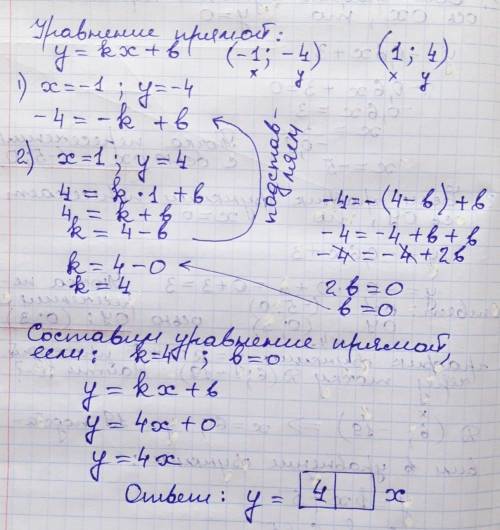 Уравнение прямой:
y = kx + b (-1; -4) (1; 4)
x y x y
1) x = -1 ; y = -4
-4 = -k + b
2) x = 1 ; y = 4
4 = k · 1 + b
4 = k + b
k = 4 - b
подстав-
ляем
-4 = -(4 - b) + b
-4 = -4 + b + b
-4 = -4 + 2b
2b = 0
b = 0
k = 4 - 0
k = 4
Составим уравнение прямой,
если: k = 4 ; b = 0
y = kx + b
y = 4x + 0
y = 4x
Ответ: y = 4 x